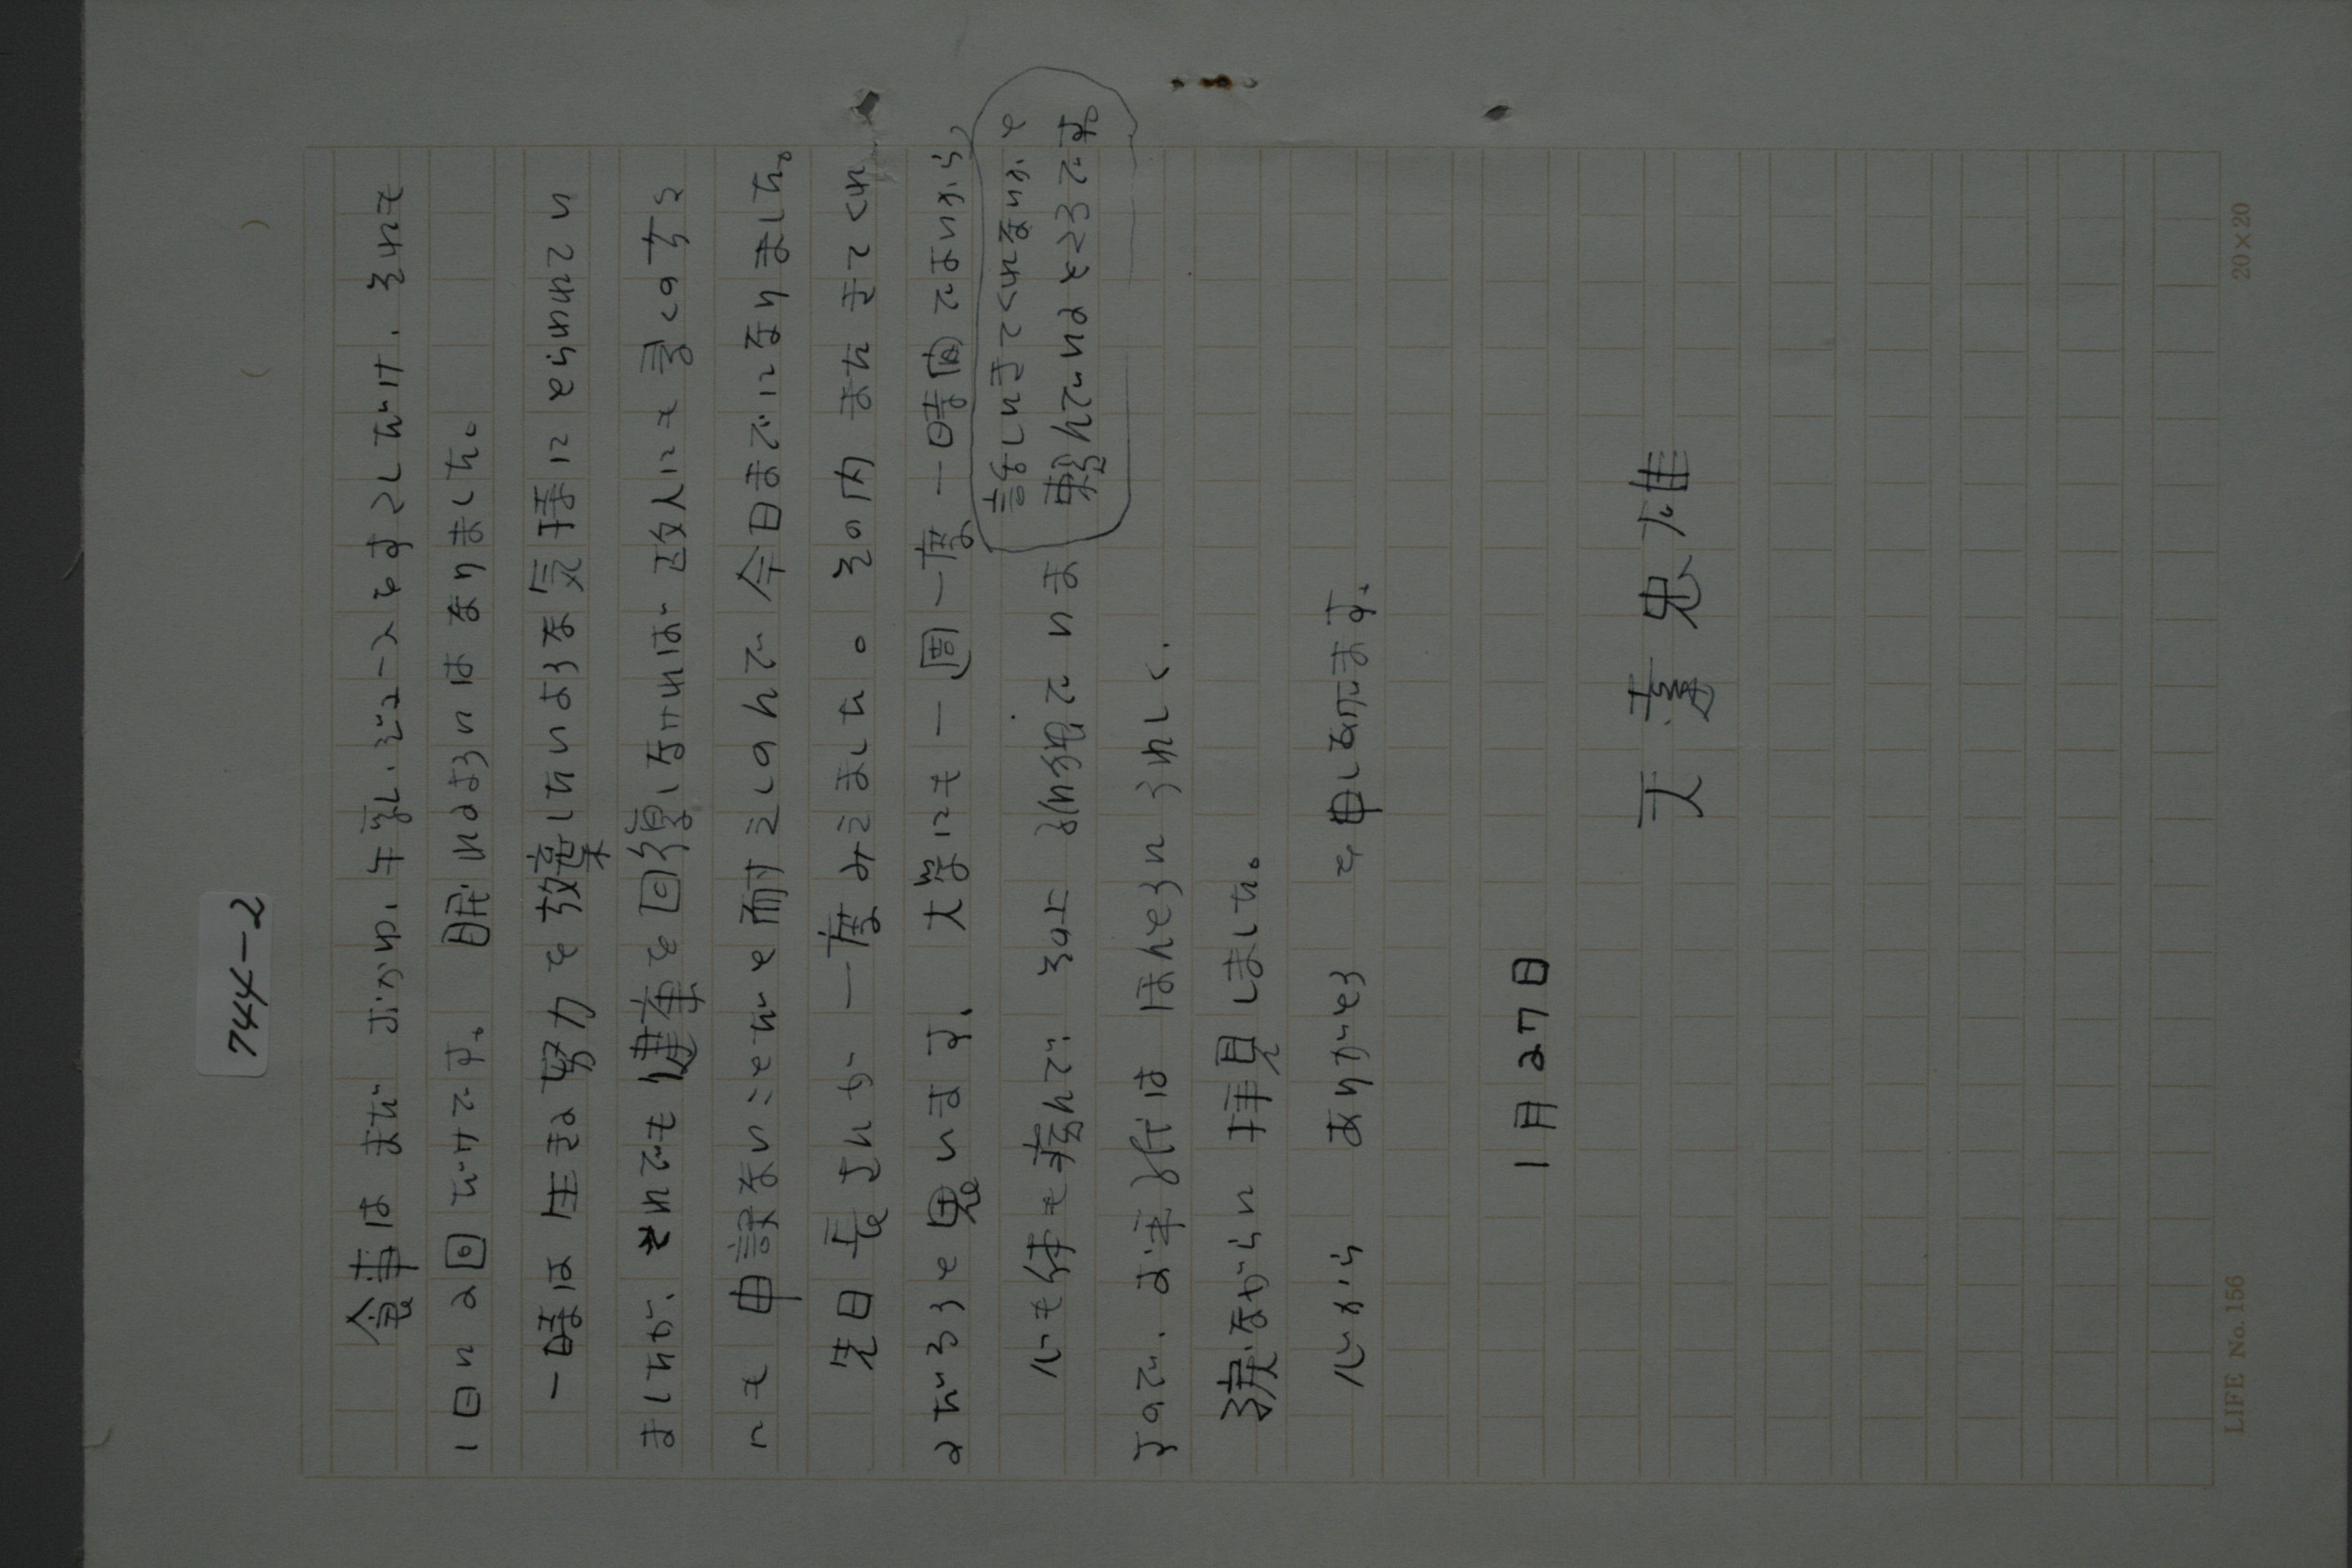 744-2
食事は まだ おかゆ、牛乳、ジュースを すこしだけ、それも
1日に2回だけです。 眠れるようには なりました。
一時は 生きる努力を放棄したいような気持に とらわれてい
ましたが、それでも健康を回復しなければ 故人にも 多くの方々
にも 申訳ないことだと耐えしのんで 今日までになりました。
先日 長さんが 一度みえました。その内 またきてくれ
るだろうと思います、 大学にも 一週一度 一時間でいいから、
話しにきてくれないかと
頼んでいるところです。
心も体も病んで、その上 疲れていま
すので、お手紙は ほんとうに うれしく、
涙ながらに 拝見しました。
心から ありがとう と申しあげます、
1月27日
天達忠雄
20×20
LIFE No.156